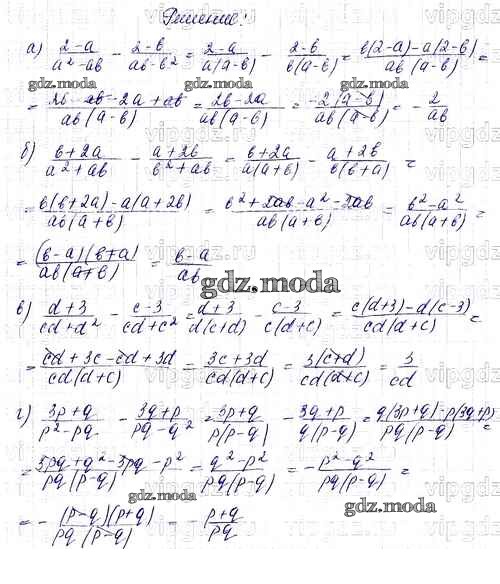 Решение:
а) (2-a)/(a²-ab) - (2-b)/(ab-b²) = (2-a)/(a(a-b)) - (2-b)/(b(a-b)) = (b(2-a)-a(2-b))/(ab(a-b)) =
= (2b-ab-2a+ab)/(ab(a-b)) = (2b-2a)/(ab(a-b)) = (-2(a-b))/(ab(a-b)) = -2/(ab)
б) (b+2a)/(a²+ab) - (a+2b)/(b²+ab) = (b+2a)/(a(a+b)) - (a+2b)/(b(b+a)) =
= (b(b+2a)-a(a+2b))/(ab(a+b)) = (b²+2ab-a²-2ab)/(ab(a+b)) = (b²-a²)/(ab(a+b)) =
= ((b-a)(b+a))/(ab(a+b)) = (b-a)/(ab)
в) (d+3)/(cd+d²) - (c-3)/(cd+c²) = (d+3)/(d(c+d)) - (c-3)/(c(d+c)) = (c(d+3)-d(c-3))/(cd(d+c)) =
= (cd+3c-cd+3d)/(cd(d+c)) = (3c+3d)/(cd(d+c)) = (3(c+d))/(cd(d+c)) = 3/(cd)
г) (3p+q)/(p²-pq) - (3q+p)/(pq-q²) = (3p+q)/(p(p-q)) - (3q+p)/(q(p-q)) = (q(3p+q)-p(3q+p))/(pq(p-q)) =
= (3pq+q²-3pq-p²)/(pq(p-q)) = (q²-p²)/(pq(p-q)) = -(p²-q²)/(pq(p-q)) =
= -((p-q)(p+q))/(pq(p-q)) - -(p+q)/(pq)
gdz.moda
gdz.moda
gdz.moda
gdz.moda
gdz.moda
gdz.moda
gdz.moda
gdz.moda